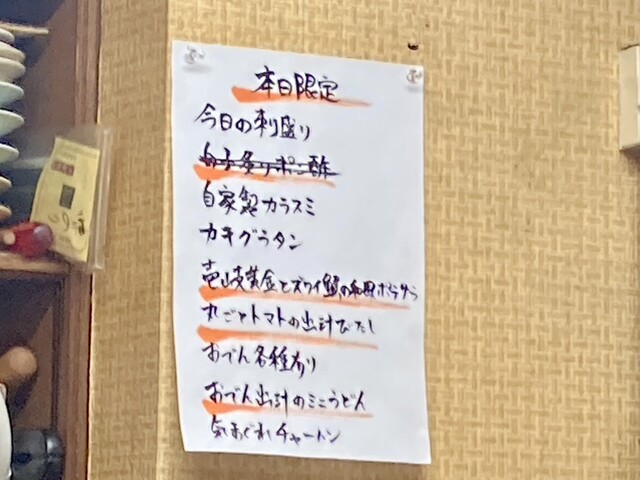 本日限定
今日の刺盛り
白子炙りポン酢
自家製カラスミ
カキグラタン
壱岐黄金とズワイ蟹の和風ポテサラ
丸ごとトマトの出汁びたし
おでん各種有り
おでん出汁のミニうどん
気まぐれチャーハン